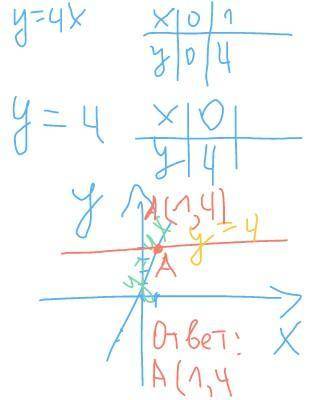 y=4x
x 0 1
y 0 4
y = 4
x 0
y 4
y
A(1,4)
y = 4
y=4x
A
x
Ответ:
A(1,4